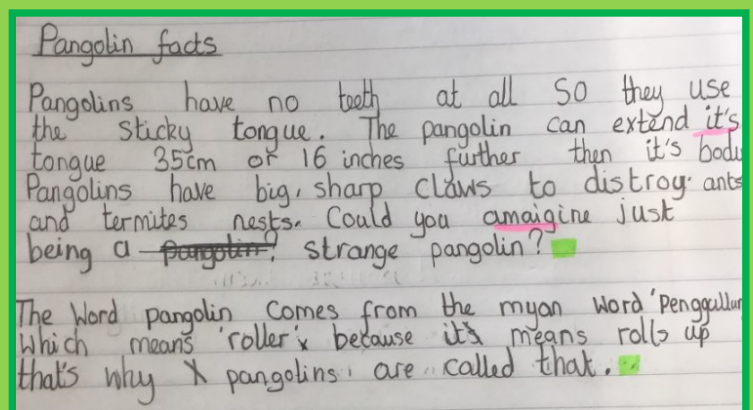 Pangolin facts
Pangolins have no teeth at all So they use
the sticky tongue. The pangolin can extend it's
tongue 35cm or 16 inches further then it's body
Pangolins have big, sharp claws to distroy ants
and termites nests. Could you amaigine just
being a strange pangolin?
The Word pangolin comes from the myan word
Which means 'roller' because it's means rolls up
that's why pangolins are called that.